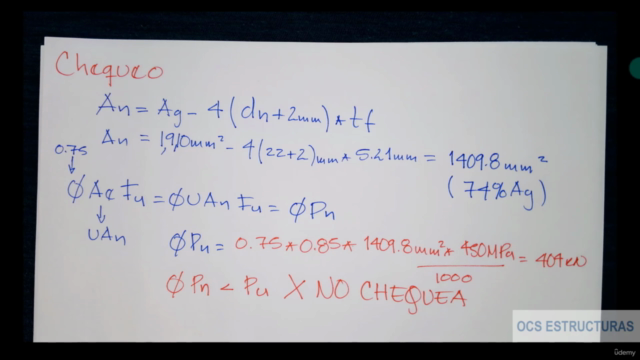 Chequeo
An = Ag - 4(dn+2mm)*tf
An = 1,910mm² - 4(22+2)mm*5.21mm = 1409.8mm²
(74%Ag)
0.75
ØAeFu = ØUAnFu = ØPn
UAn
ØPn = 0.75*0.85*1409.8mm²*450MPa/1000 = 404kN
ØPn < Pu X NO CHEQUEA
OCS ESTRUCTURAS
ûdemy